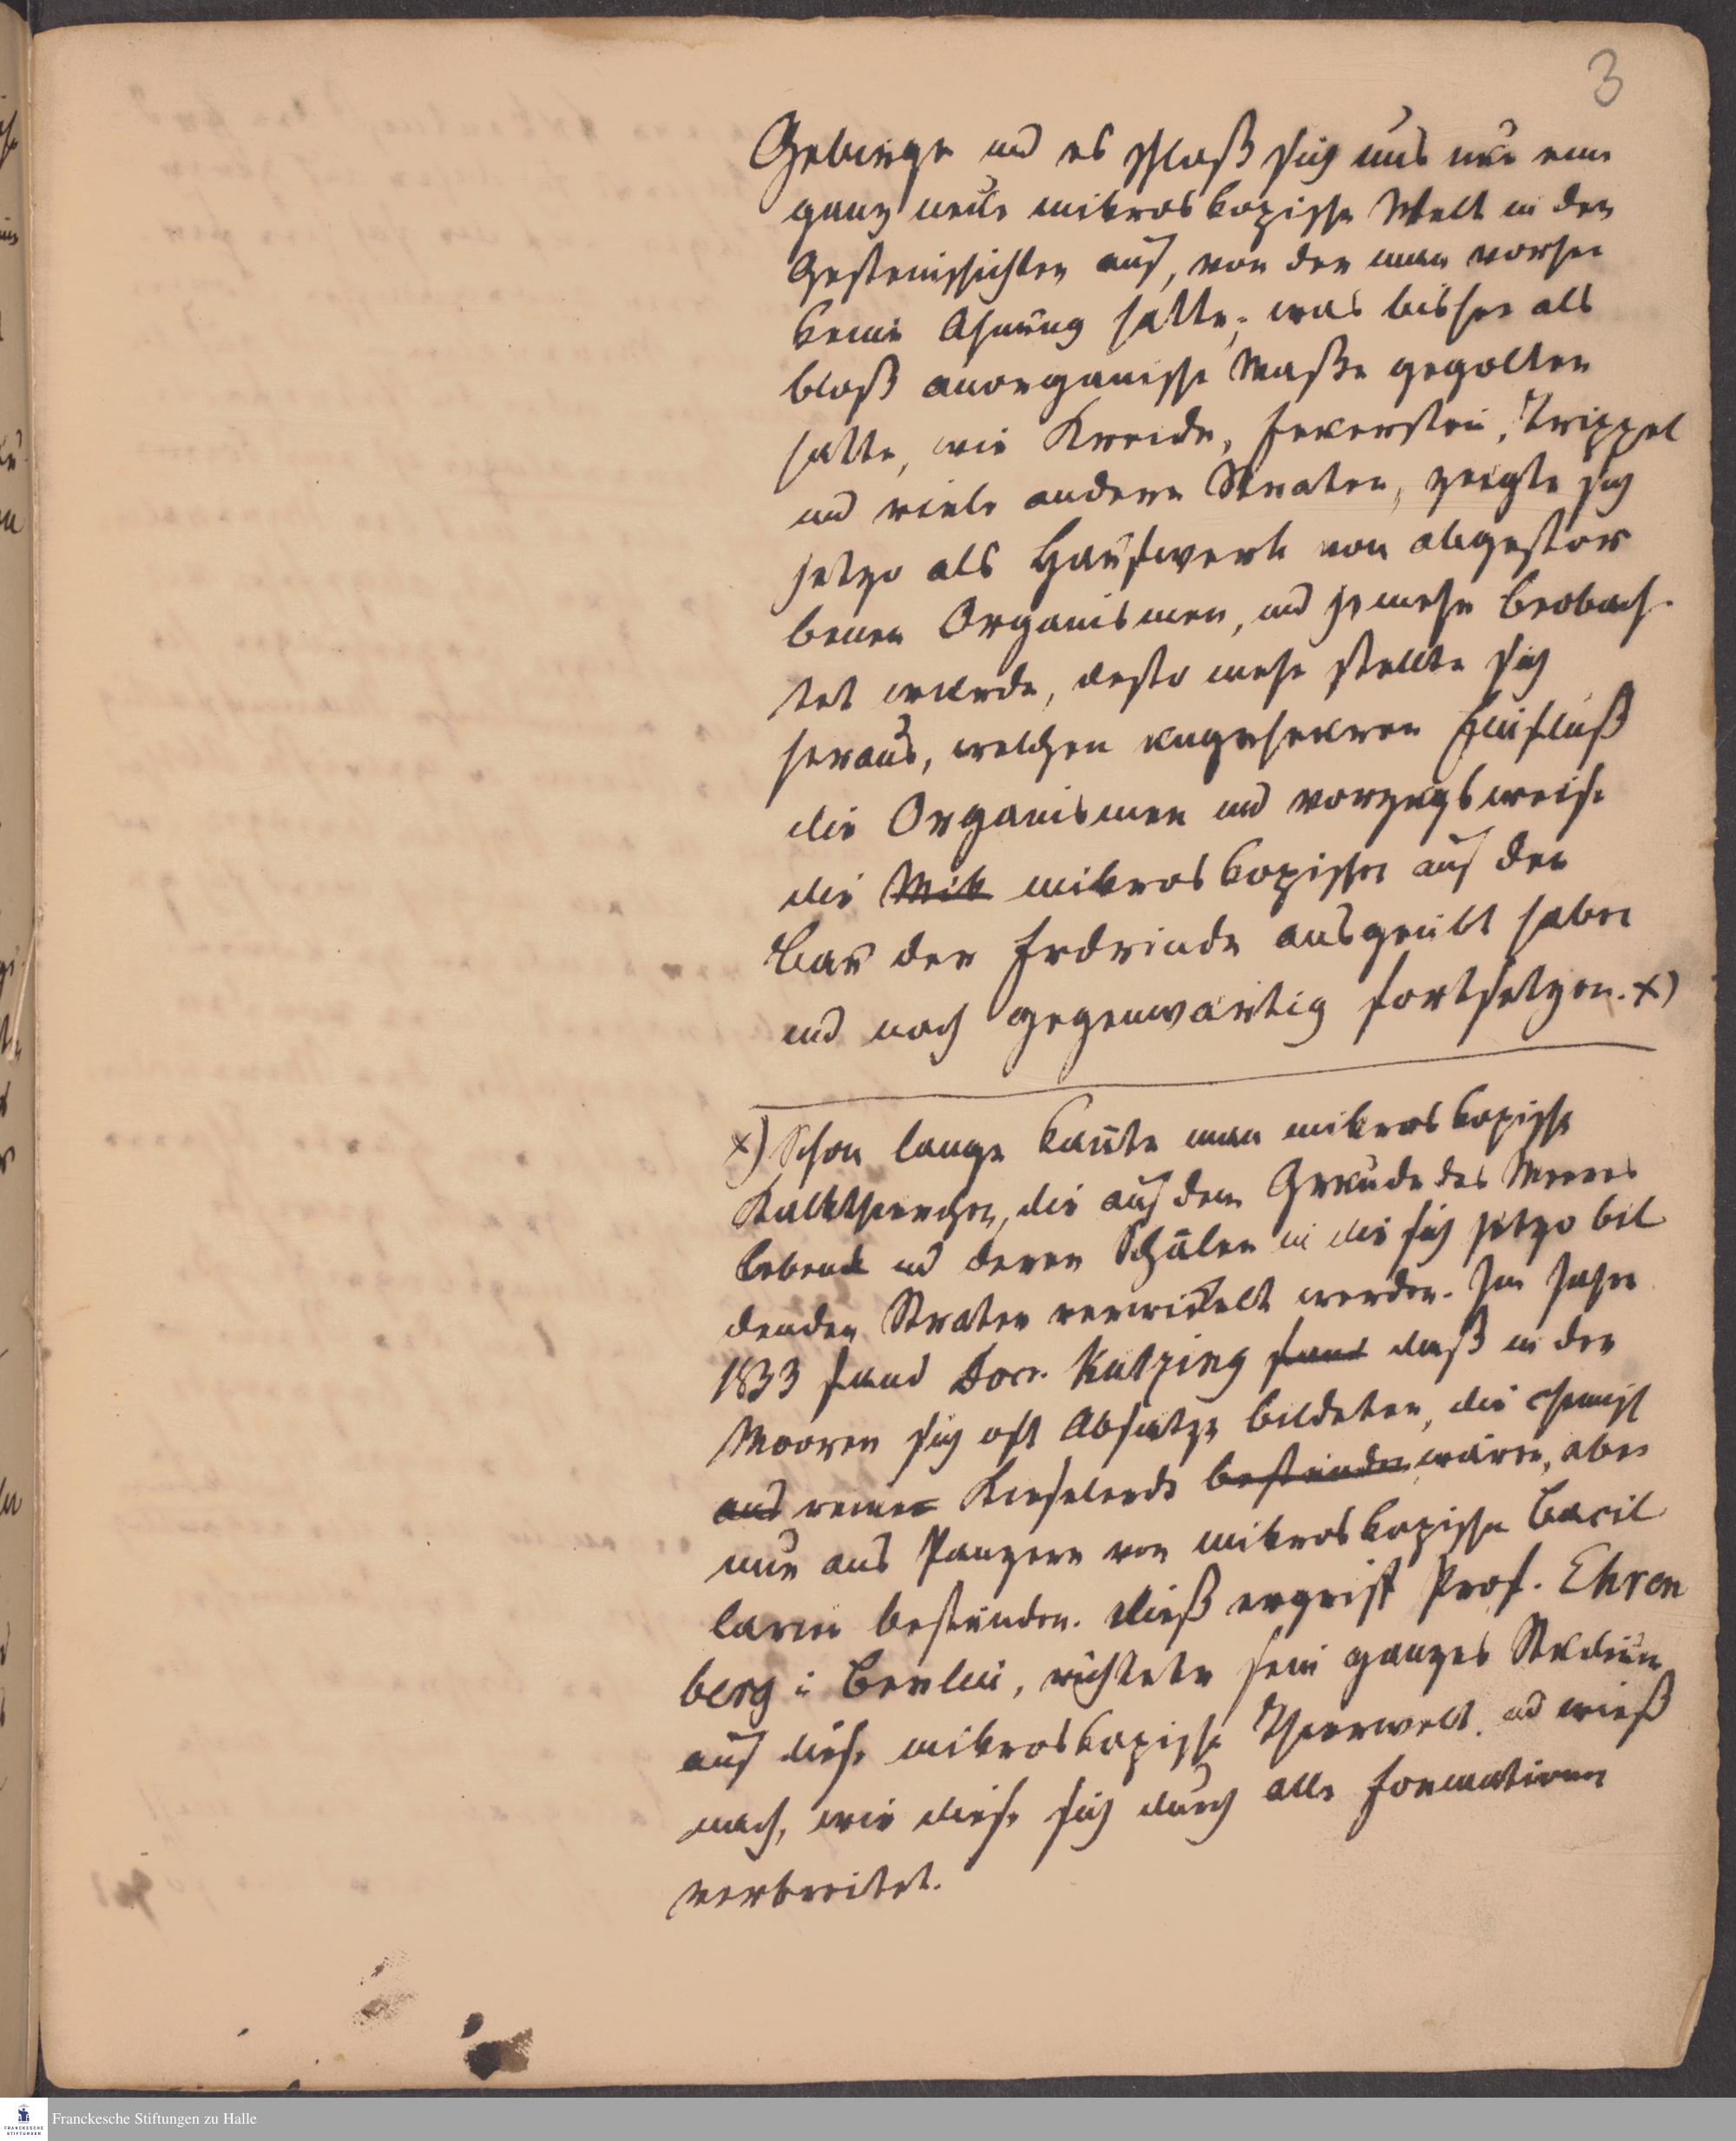 3
Gebirge und es schloß sich uns nun eine
ganz neue mikroskopische Welt in den
Gesteinschichten auf, von der man vorher
keine Ahnung hatte; was bisher als
bloß anorganische Maße gegolten
hatte, wie Kreide, Feuerstein, Trippel
und viele andere Straten, zeigte sich
jetzo als Haufwerk von abgestor
benen Organismen, und jemehr beobach-
tet wurde, desto mehr stellte sich
heraus, welchen ungeheuren Einfluß
die Organismen und vorzugsweise
die Mik mikroskopischen auf den
Bau der Erdrinde ausgeübt haben
und noch gegenwärtig fortsetzen. x)
x) Schon lange kannte man mikroskopische
Kalkthierchen, die auf dem Grunde des Meeres
lebend und deren Schalen in die sich jetzo bil
denden Straten verwickelt werden. Im Jahre
1833 fand Docr. Kützing fand daß in den
Mooren sich oft Absätze bildeten, die chemisch
aus reiner Kieselerde bestünden wären, aber
nur aus Panzern von mikroskopischen Bacil
larien bestünden. Dieß ergriff Prof. Ehren
berg i Berlin, richtete sein ganzes Studium
auf diese mikroskopische Thierwelt. und wieß
nach, wie diese sich durch alle Formationen
verbreitet.
Franckesche Stiftungen zu Halle
FRANCKESCHE
STIFTUNGEN